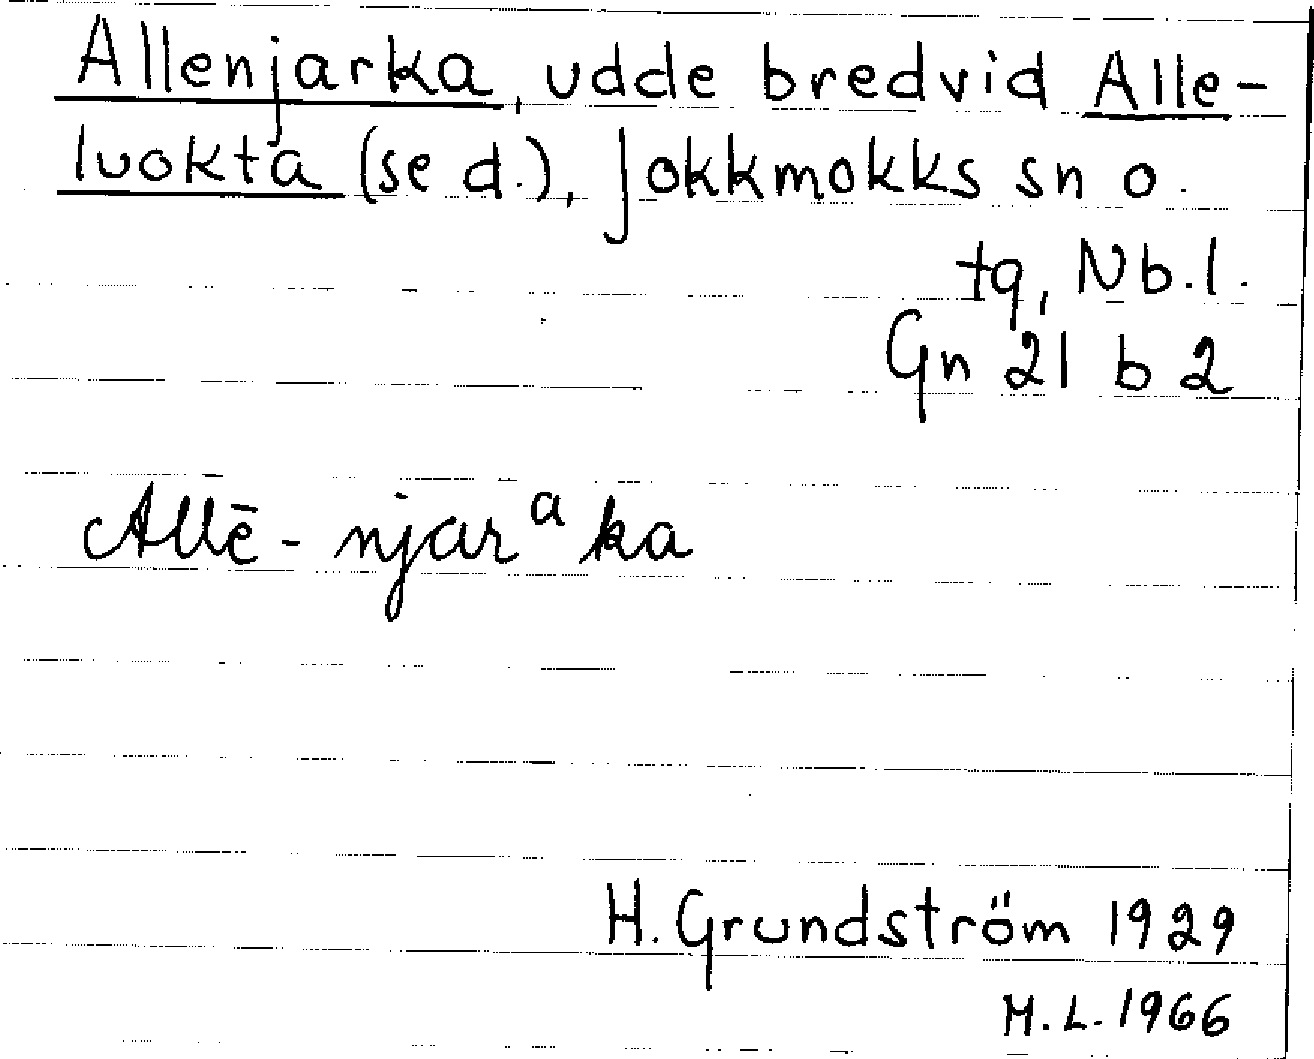 Allenjarka, udde bredvid Alle-
luokta (se d.), Jokkmokks sn o.
tg, Nb. l.
Gn 21 b 2
Allē - njarᵃka
H. Grundström 1929
M. L. 1966